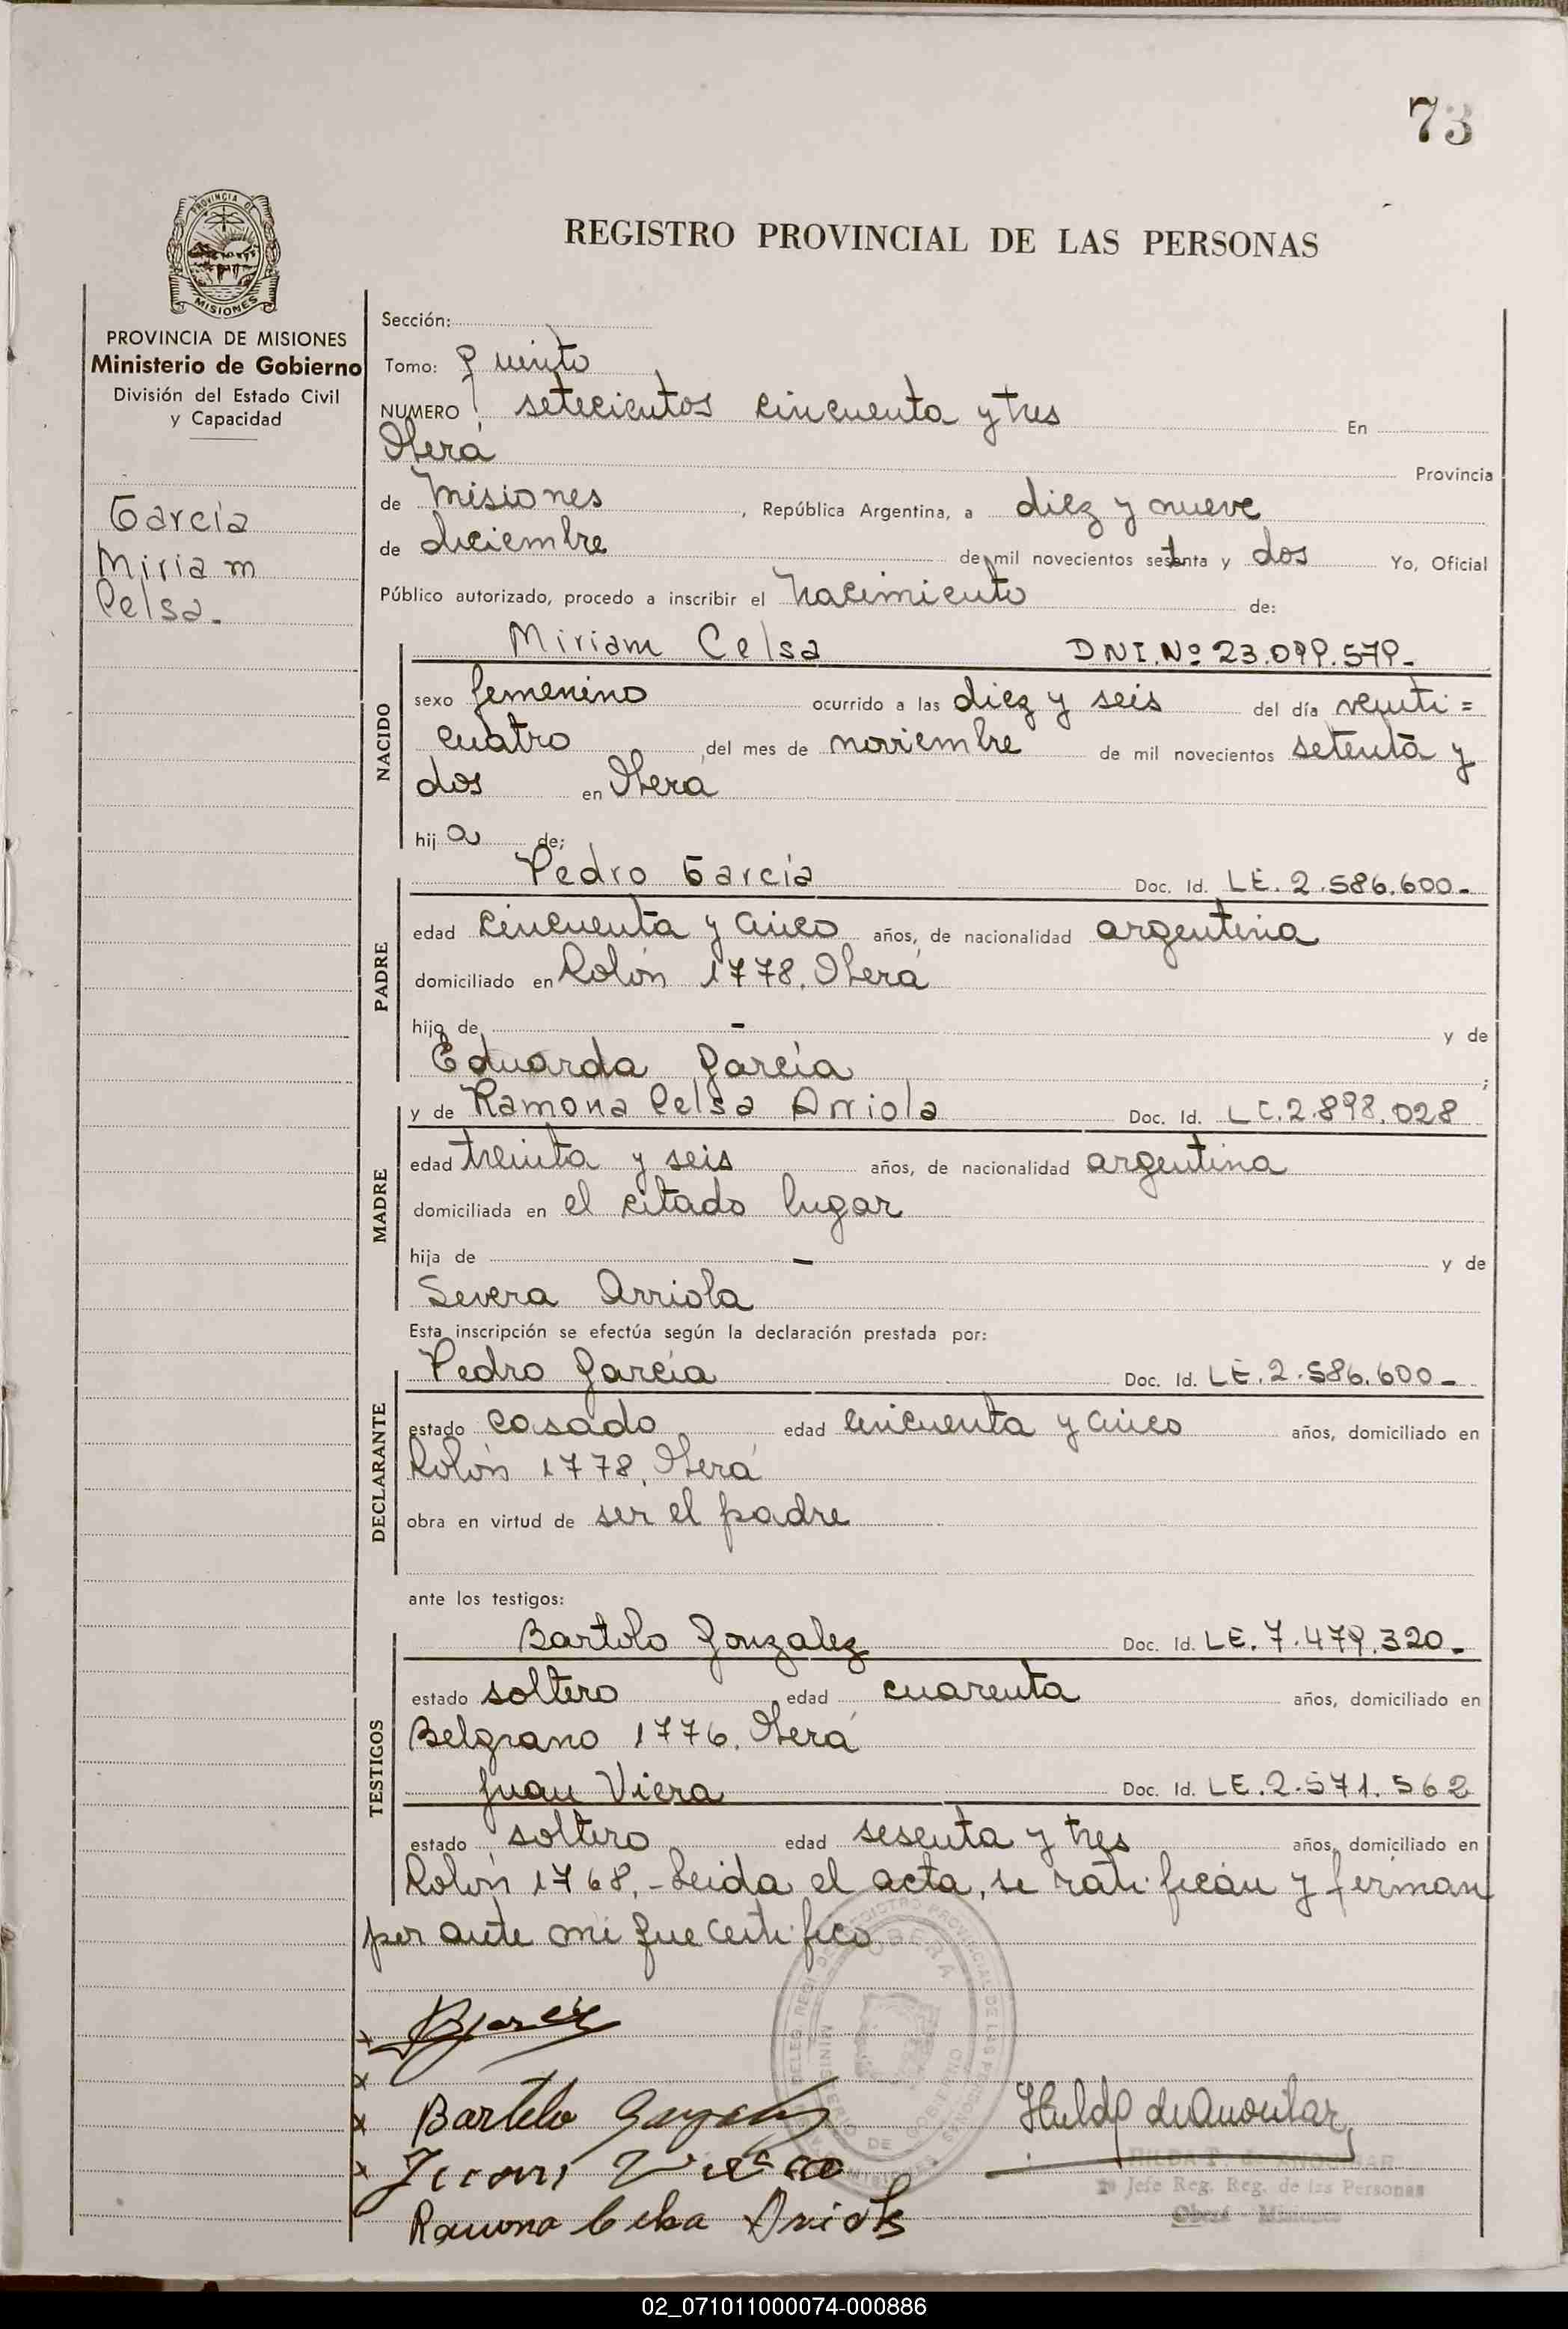 73
REGISTRO PROVINCIAL DE LAS PERSONAS
PROVINCIA DE
MISIONES
PROVINCIA DE MISIONES
Ministerio de Gobierno
División del Estado Civil
y Capacidad
Garcia
Miriam
Celsa.
Sección:
Tomo: Quinto
NUMERO setecientos cincuenta y tres En
Oberá Provincia
de Misiones, República Argentina, a diez y nueve
de diciembre de mil novecientos setenta y dos Yo, Oficial
Público autorizado, procedo a inscribir el Nacimiento de:
NACIDO
Miriam Celsa DNI.Nº 23.099.579-
sexo femenino ocurrido a las diez y seis del día veinti=
cuatro del mes de noviembre de mil novecientos setenta y
dos en Oberá
hija de;
PADRE
Pedro García Doc. Id. LE. 2.586.600-
edad cincuenta y cinco años, de nacionalidad argentina
domiciliado en Colón 1778. Oberá
hijo de - y de
Eduarda García ;
MADRE
y de Ramona Celsa Arriola Doc. Id. LC.2.898.028
edad treinta y seis años, de nacionalidad argentina
domiciliada en el citado lugar
hija de - y de
Severa Arriola
Esta inscripción se efectúa según la declaración prestada por:
DECLARANTE
Pedro García Doc. Id. LE.2.586.600-
estado casado edad cincuenta y cinco años, domiciliado en
Colón 1778, Oberá
obra en virtud de ser el padre
ante los testigos:
TESTIGOS
Bartolo Gonzalez Doc. Id. LE. 7.479.320-
estado soltero edad cuarenta años, domiciliado en
Belgrano 1776. Oberá
Juan Viera Doc. Id. LE.2.571.562
estado soltero edad sesenta y tres años, domiciliado en
Colón 1768.-Leida el acta, se ratifican y firman
por ante mi que certifico
OBERA
Bartolo Gonzalez
Juan Viera
Ramona Celsa Arriola
HILDA T. de
Jefe Reg. Reg. de las Personas
Oberá - Misiones
02_071011000074-000886